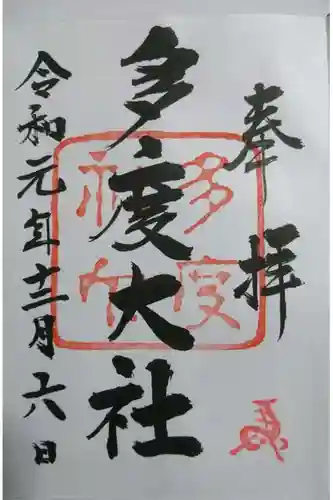 奉拝
多度大社
令和元年十二月十六日
多度
神社